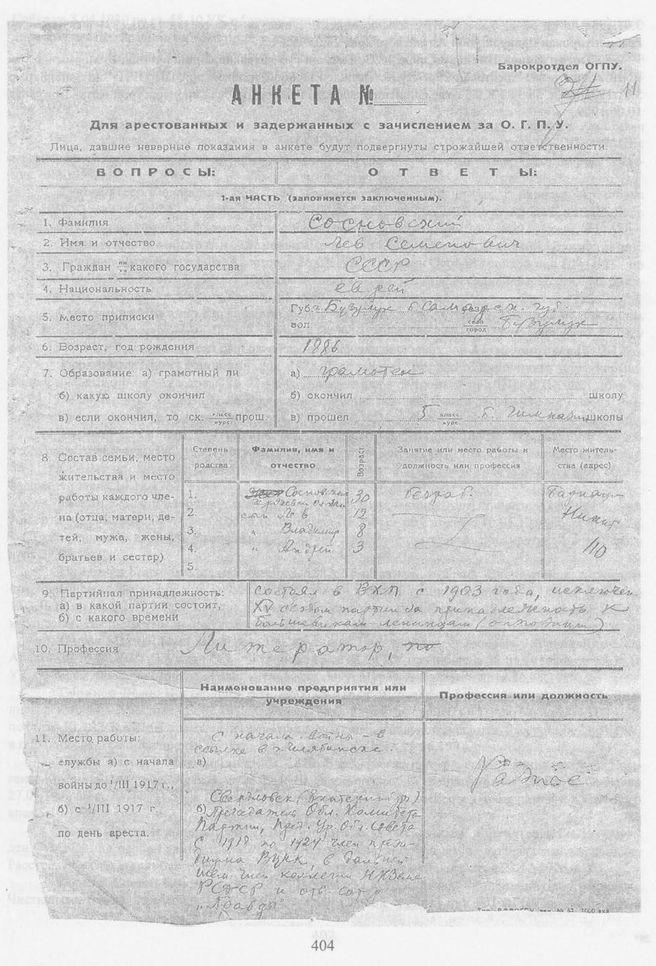 Барокротдел ОГПУ.
11
АНКЕТА №
Для арестованных и задержанных с зачислением за О. Г. П. У.
Лица, давшие неверные показания в анкете будут подвергнуты строжайшей ответственности.
ВОПРОСЫ: ОТВЕТЫ:
1-ая ЧАСТЬ (заполняется заключенным).
1. Фамилия Сосновский
2. Имя и отчество Лев Семенович
3. Граждан какого государства СССР
4. Национальность еврей
5. Место приписки Губ. г. Бузулук б. Самарск. губ.
вол село город Бузулук
6. Возраст, год рождения 1886
7. Образование: а) грамотный ли а) грамотен
б) какую школу окончил б) окончил школу
в) если окончил, то ск. класс курс прош. в) прошел 5 класс курс б. гимназии школы
8. Состав семьи, место жительства и место работы каждого члена (отца, матери, детей, мужа, жены, братьев и сестер)
Степень родства Фамилия, имя и отчество Возраст Занятие или место работы и должность или профессия Место жительства (адрес)
1. Сосновская 30 Безраб.
2. сын Лев 12
3. " Владимир 8
4. " Андрей 3 110
5.
9. Партийная принадлежность: состоял в ВКП с 1903 года, исключен
а) в какой партии состоит, XV съездом партии за принадлежность к
б) с какого времени большевикам ленинцам (оппозиции)
10. Профессия Литератор,
Наименование предприятия или учреждения Профессия или должность
11. Место работы: с начала войны – в
службы а) с начала ссылке в Челябинске.
войны до 1/III 1917 г., а) Разное
б) с 1/III 1917 г. Свердловск (Екатеринбург)
по день ареста. б) Председатель Обл. Комитета
Партии, Пред. Ур. Обл. Совета
С 1918 по 1924 член прези-
диума ВЦИК, в дальней-
шем член коллегии НКЗема
РСФСР и отв. сотр.
"Правды"
404